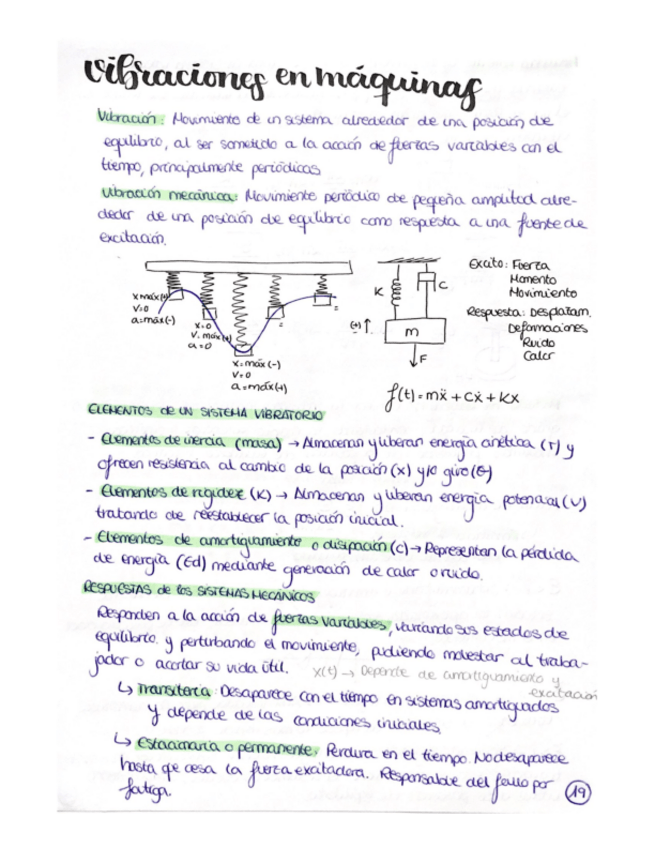 Vibraciones en máquinas
Vibración: Movimiento de un sistema alrededor de una posición de
equilibrio, al ser sometido a la acción de fuerzas variables con el
tiempo, principalmente periódicas
Vibración mecánica: Movimiento periódico de pequeña amplitud alre-
dedor de una posición de equilibrio como respuesta a una fuente de
excitación.
x máx(+)
V=0
a=máx(-)
x=0
V=máx(+)
a=0
x=máx(-)
V=0
a=máx(+)
K
C
(+)↑
m
F
Excito: Fuerza
Momento
Movimiento
Respuesta: Desplazam.
Deformaciones
Ruido
Calor
f(t)=mẍ + cẋ + kx
ELEMENTOS de UN SISTEMA VIBRATORIO
- Elementos de inercia (masa) → Almacenan y liberan energía cinética (T) y
ofrecen resistencia al cambio de la posición (x) y/o giro (θ)
- Elementos de rigidez (K) → Almacenan y liberan energía potencial (V)
tratando de reestablecer la posición inicial.
- Elementos de amortiguamiento o disipación (c) → Representan la pérdida
de energía (Ed) mediante generación de calor o ruido.
RESPUESTAS de los SISTEMAS MECÁNICOS
Responden a la acción de fuerzas variables, variando sus estados de
equilibrio y perturbando el movimiento, pudiendo molestar al traba-
jador o acortar su vida útil. x(t) → Depende de amortiguamiento y
excitación
↳ Transitoria: Desaparece con el tiempo en sistemas amortiguados
y depende de las condiciones iniciales.
↳ Estacionaria o permanente: Perdura en el tiempo. No desaparece
hasta que cesa la fuerza excitadora. Responsable del fallo por
fatiga.
19